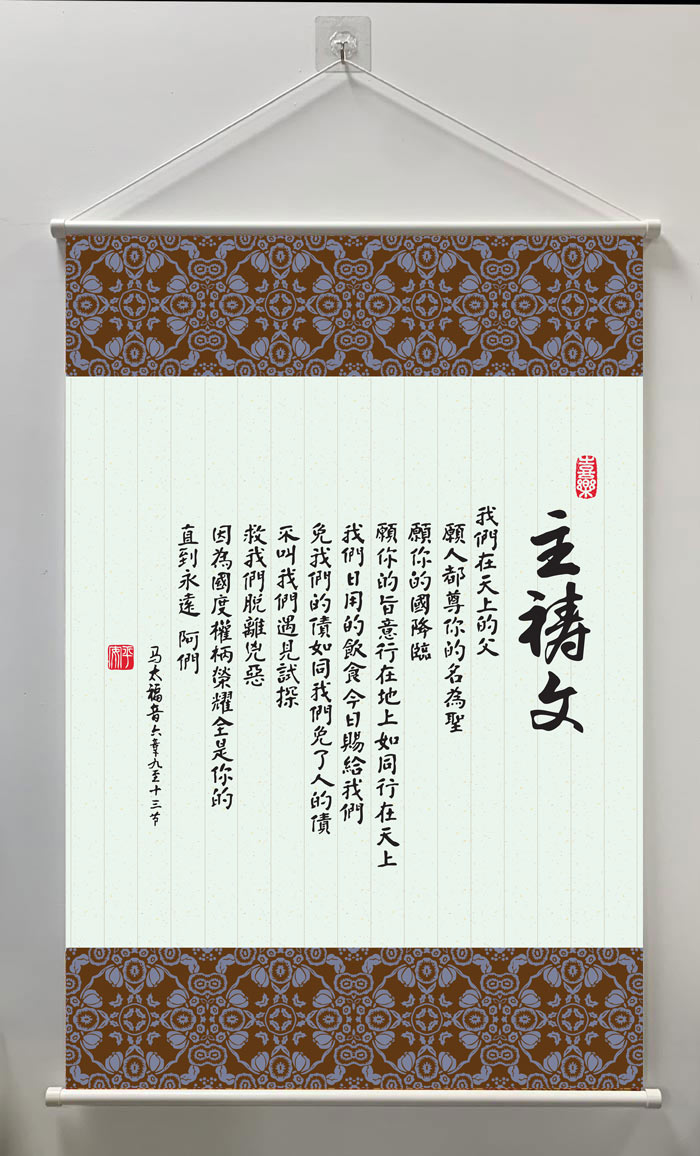 喜樂
主禱文
我們在天上的父
願人都尊你的名為聖
願你的國降臨
願你的旨意行在地上如同行在天上
我們日用的飲食今日賜給我們
免我們的債如同我們免了人的債
不叫我們遇見試探
救我們脫離兇惡
因為國度權柄榮耀全是你的
直到永遠 阿們
马太福音六章九至十三节
平安